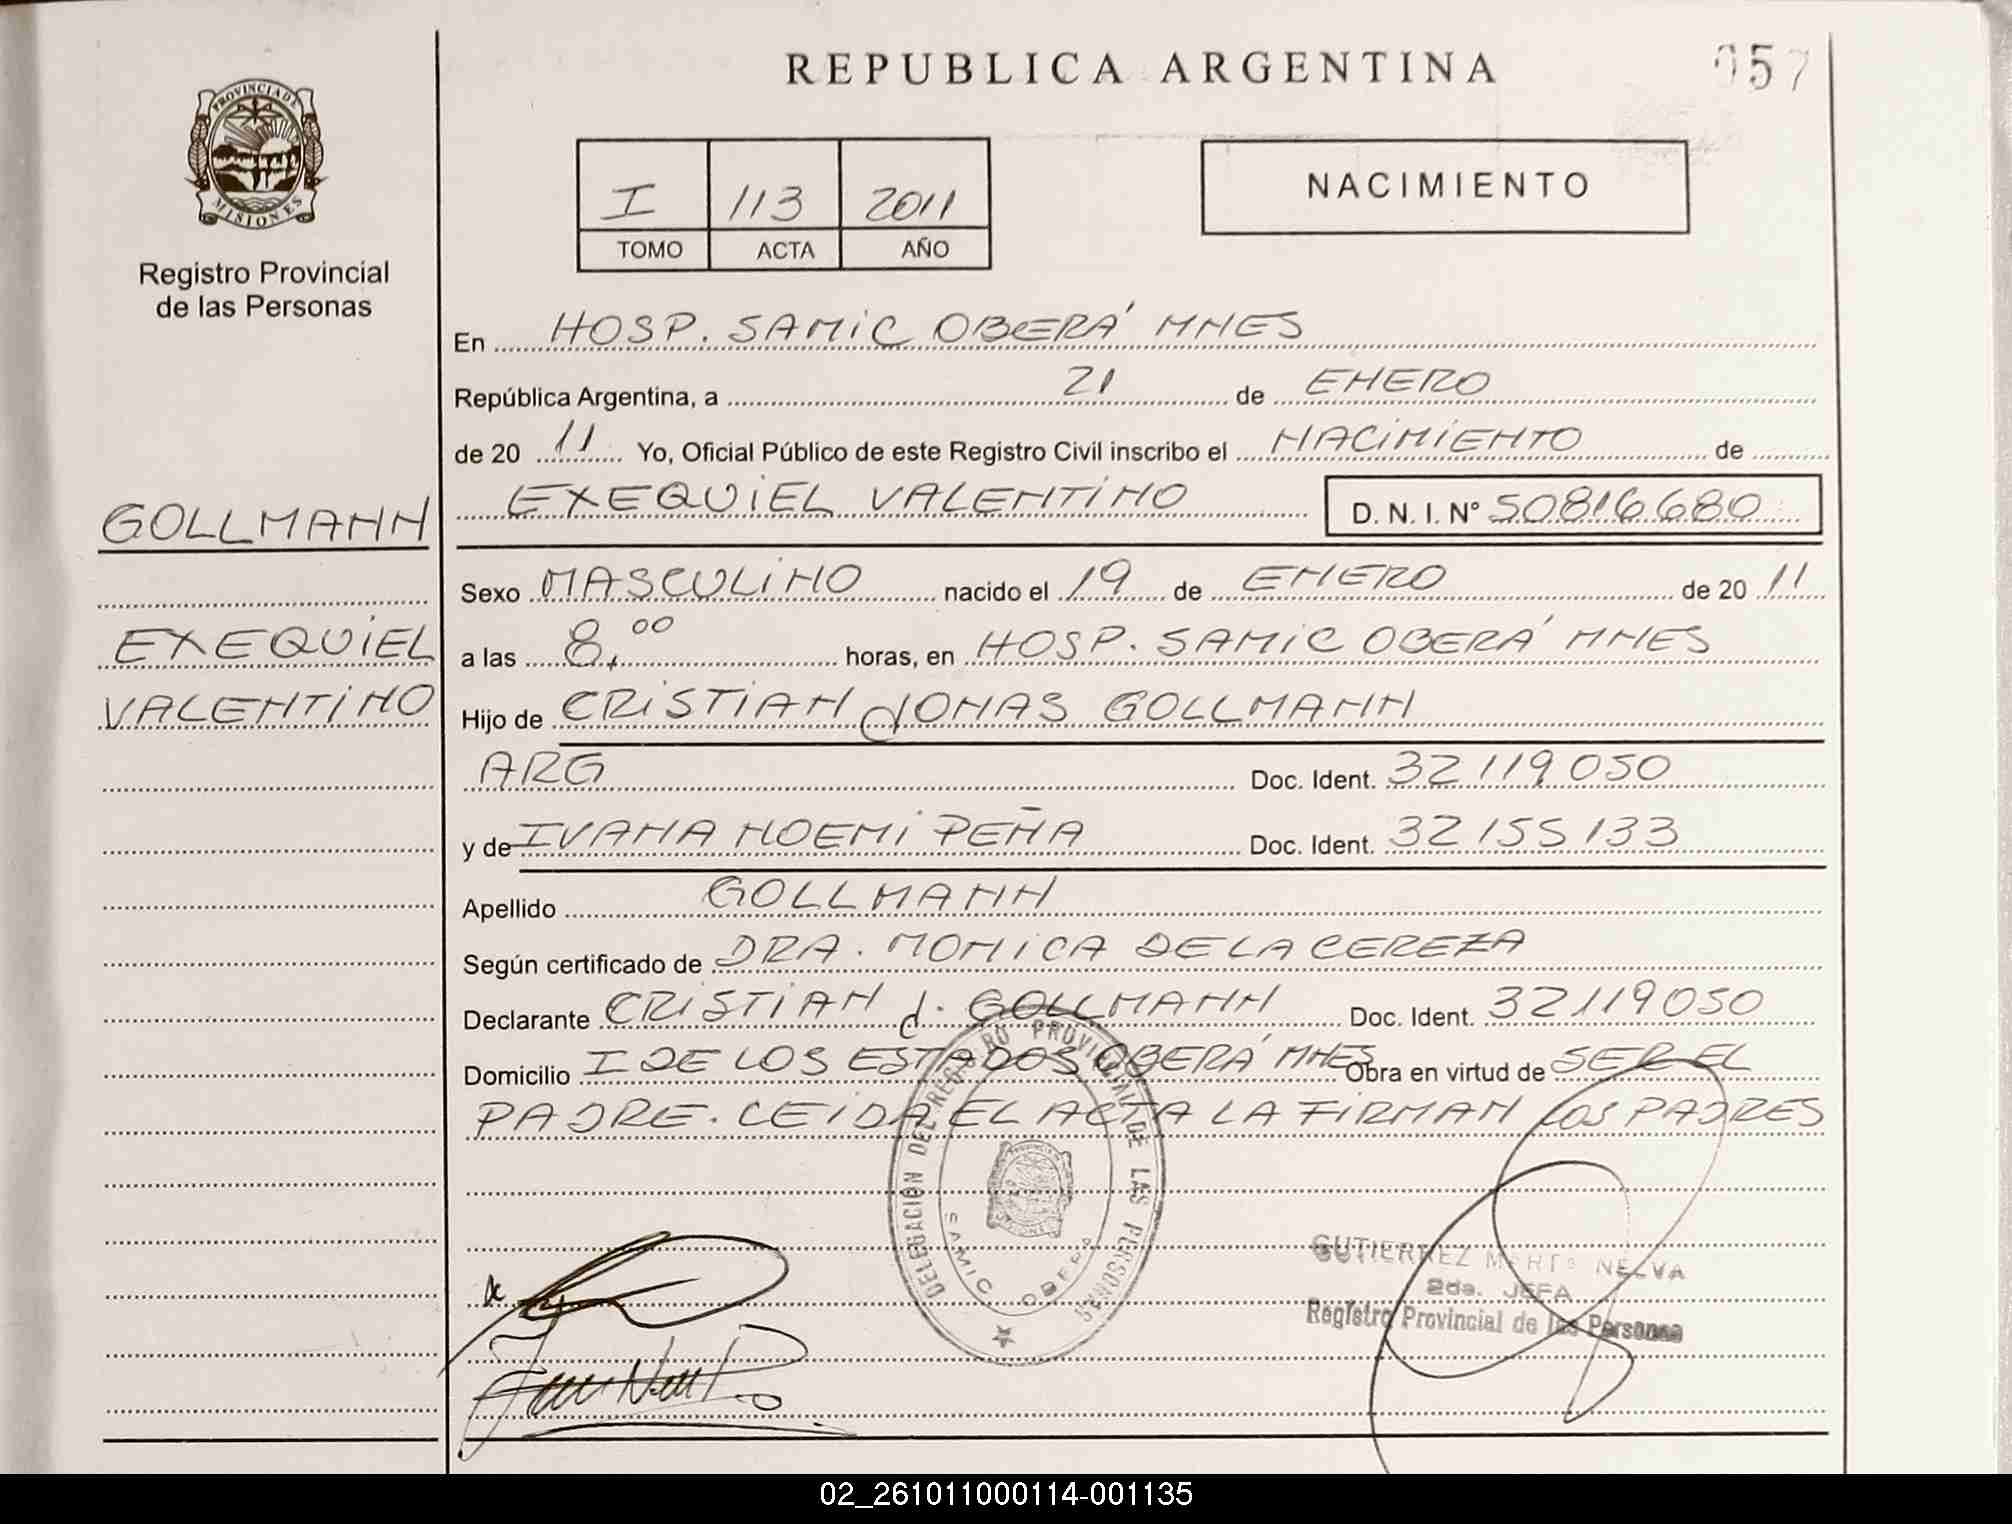 REPUBLICA ARGENTINA
057
PROVINCIA DE
MISIONES
Registro Provincial
de las Personas
I 113 2011
TOMO ACTA AÑO
NACIMIENTO
En HOSP. SAMIC OBERÁ MNES
República Argentina, a 21 de ENERO
de 20 11 Yo, Oficial Público de este Registro Civil inscribo el NACIMIENTO de
EXEQUIEL VALENTINO D. N. I. N° 50816680
GOLLMANN
EXEQUIEL
VALENTINO
Sexo MASCULINO nacido el 19 de ENERO de 20 11
a las 8,00 horas, en HOSP. SAMIC OBERÁ MNES
Hijo de CRISTIAN JONAS GOLLMANN
ARG Doc. Ident. 32119050
y de IVANA NOEMI PEÑA Doc. Ident. 32155133
Apellido GOLLMANN
Según certificado de DRA. MONICA DE LA CEREZA
Declarante CRISTIAN J. GOLLMANN Doc. Ident. 32119050
Domicilio I DE LOS ESTADOS OBERÁ MNES Obra en virtud de SER EL
PADRE. LEIDA EL ACTA LA FIRMAN LOS PADRES
DELEGACION DEL REGISTRO PROVINCIAL DE LAS PERSONAS
SAMIC OBERA
GUTIERREZ MARTA NELVA
2da. JEFA
Registro Provincial de las Personas
02_261011000114-001135